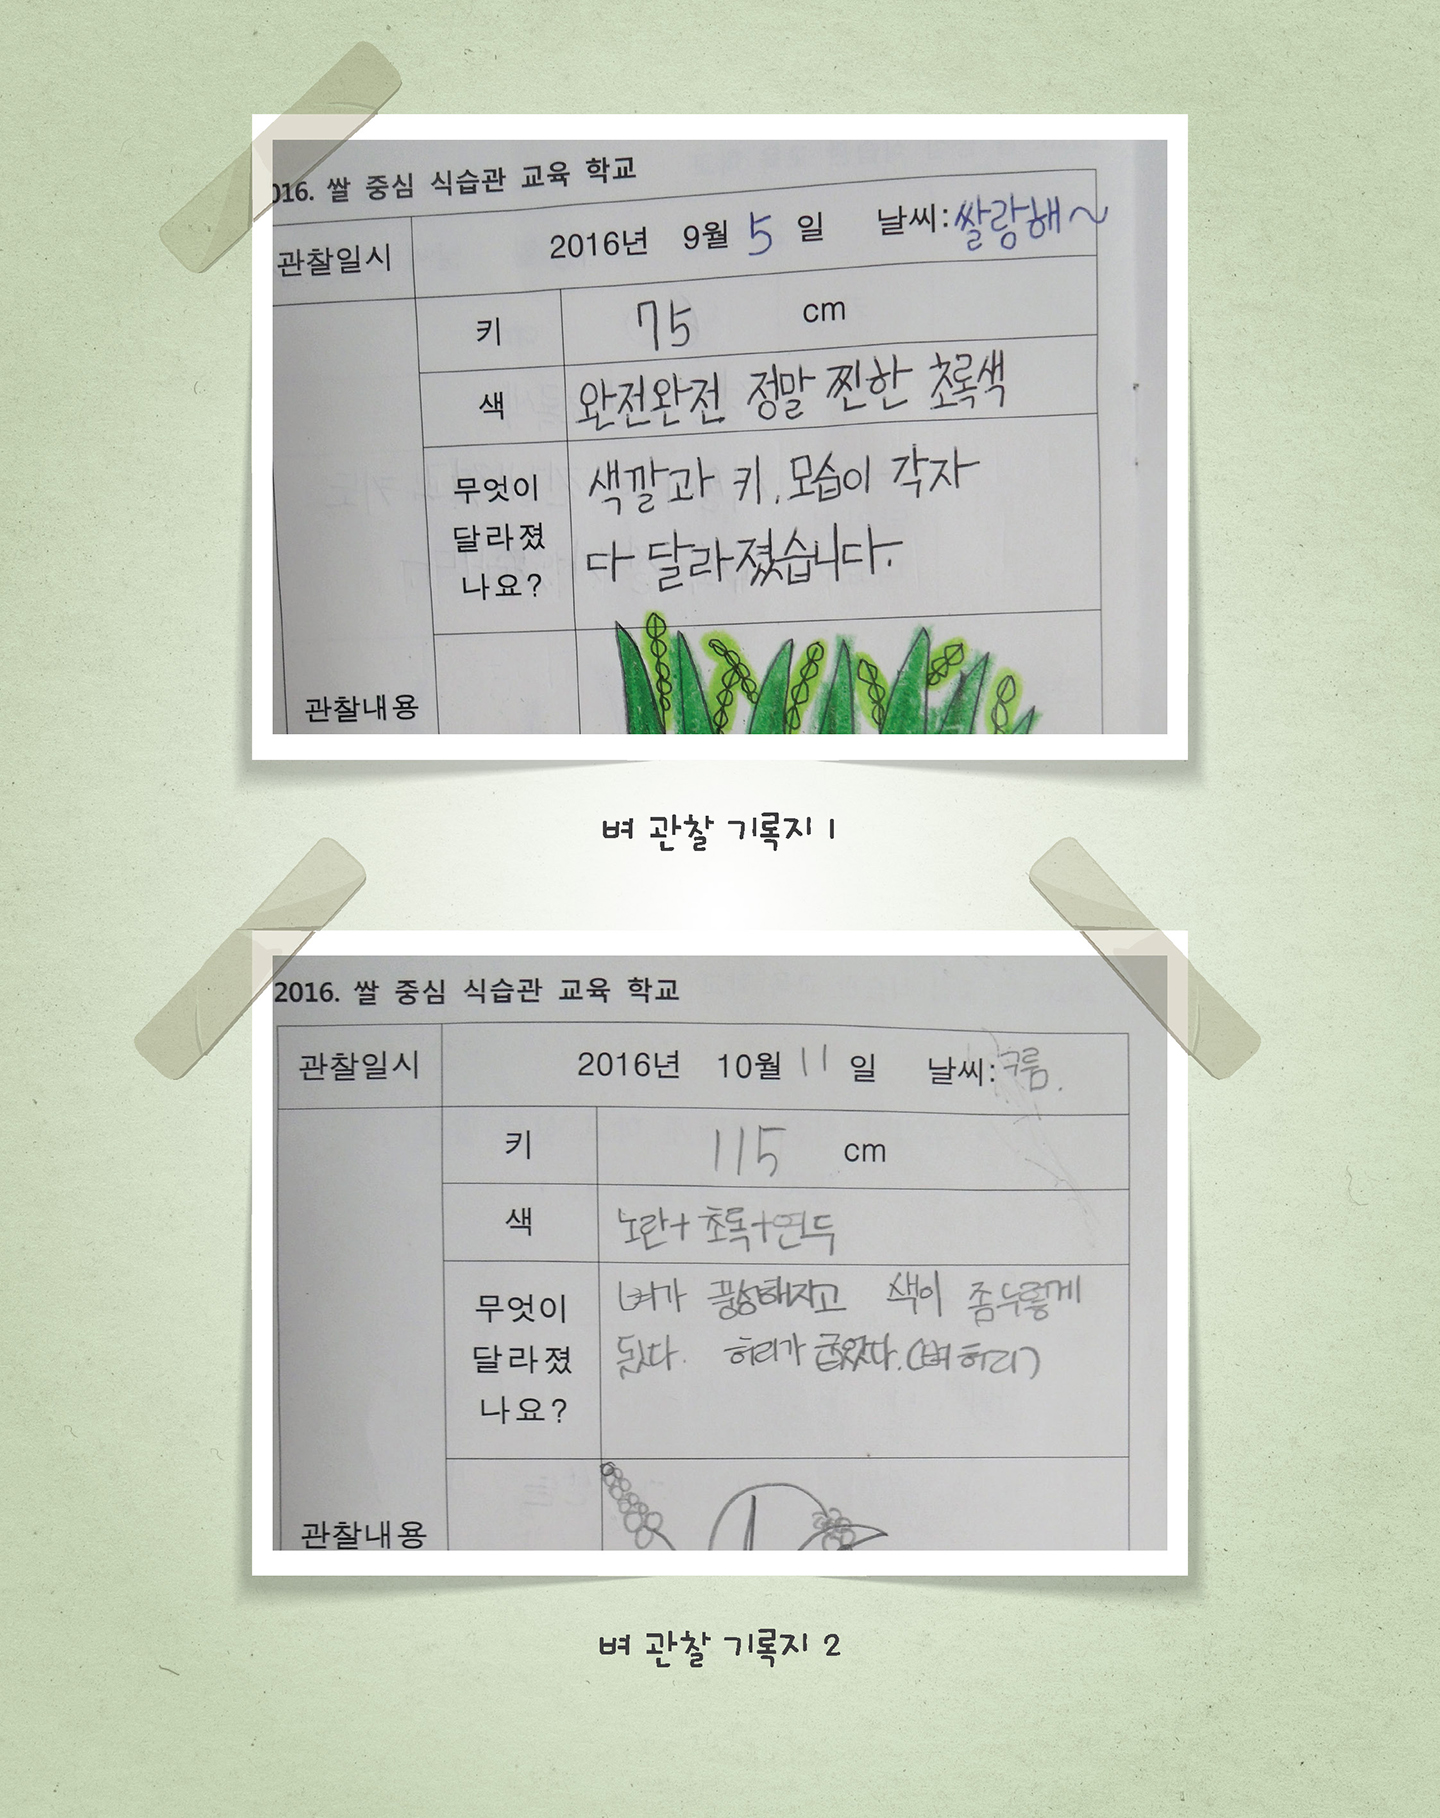 2016. 쌀 중심 식습관 교육 학교
관찰일시 2016년 9월 5 일 날씨: 쌀랑해~
키 75 cm
색 완전완전 정말 찐한 초록색
무엇이
달라졌
나요?
색깔과 키, 모습이 각자
다 달라졌습니다.
관찰내용
벼 관찰 기록지 1
2016. 쌀 중심 식습관 교육 학교
관찰일시 2016년 10월 11 일 날씨: 구름.
키 115 cm
색 노란+초록+연두
무엇이
달라졌
나요?
벼가 풍성해지고 색이 좀 누렇게
됬다. 허리가 굽었다.(벼 허리)
관찰내용
벼 관찰 기록지 2